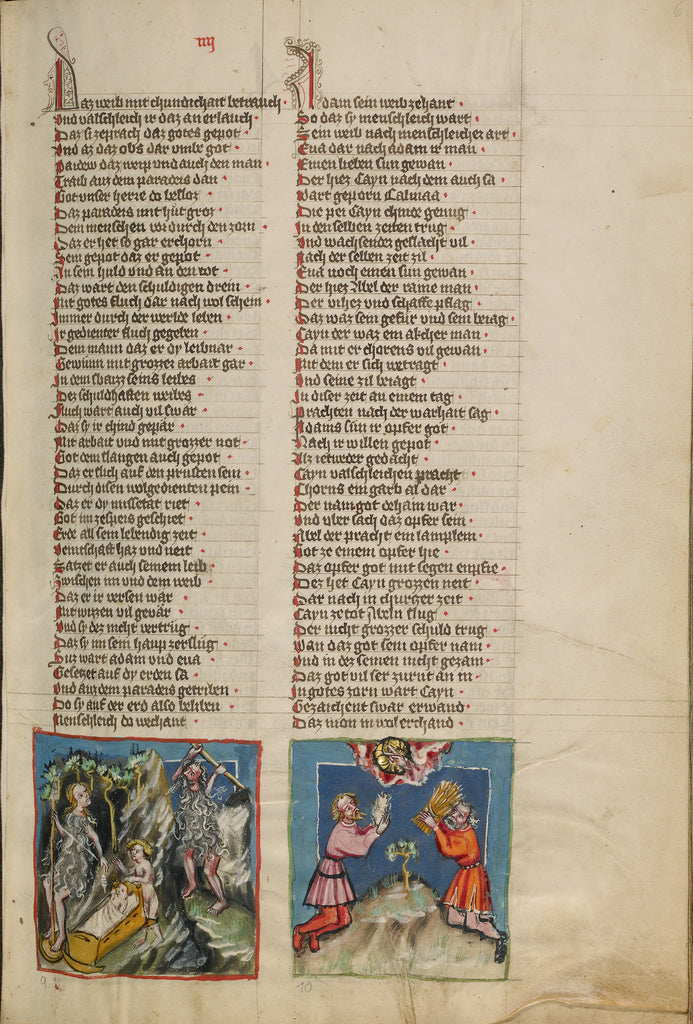 iiij
Daz weib mit chundichait betrauch
Vnd valschleich ir daz an erlauch
Daz si zeprach daz gotes gepot
Vnd az daz obs dar vmbe got
Paidew daz weip vnd auch den man
Traib auz dem paradeis dan
Got vnser herre do besloz
Daz paradeis mit hut groz
Dem menschen vor durch den zorn
Daz er het so gar erchorn
Sein gepot daz er gepot
An sein huld vnd an den tot
Daz wart den schuldigen drein
Mit gotes fluch dar nach wol schein
Immer durch der werlde leben
Ir gedienter fluch gegeben
Dem mann daz er dy leibnar
Gewinn mit grozzer arbait gar
In dem swaizz seins leibes
Dez schuldhaften weibes
Fluch wart auch vil swar
Daz sy ir chind gepar
Mit arbait vnd mit grozzer not
Got dem slangen auch gepot
Daz er slich auf den prusten sein
Durch disen wolgedienten pein
Daz er dy missetat riet
Got im ze speis geschiet
Erde all sein lebendig zeit
Veintschaft haz vnd neit
Satzet er auch seinem leib
Zwischen im vnd dem weib
Daz er ir versen war
Mit wizzen vil gevar
Vnd sy dez nicht vertrug
Daz sy im sein haup zerslug
Suz wart adam vnd eua
Gesetzet auf dy erden sa
Vnd auz dem paradeis getriben
Do sy auf der erd also beliben
Menschleich do wechant
Adam sein weib zehant
So daz sy menschleich wart
Sein weib nach menschleicher art
Eua dar nach adam ir man
Einen lieben sun gewan
Der hiez Cayn nach dem auch sa
Wart geporn Calmana
Die pei Cayn chinde genug
In den selben zeiten trug
Vnd wachsendez geslacht vil
Nach der selben zeit zil
Eua noch einen sun gewan
Der hiez Abel der raine man
Der vihez vnd schaffe pflag
Daz waz sein gefur vnd sein beiag
Cayn der waz ein akcher man
Da mit er chorens vil gewan
Mit dem er sich betragt
Vnd seine zil beiagt
In diser zeit an einem tag
Prachten nach der warhait sag
Adams sun ir opfer got
Nach ir willen gepot
Alz ietweder gedacht
Cayn valschleichen pracht
Chorns ein garb al dar
Der nam got dehain war
Vnd vber sach daz opfer sein
Abel der pracht ein lamplein
Got ze einem opfer hie
Daz opfer got mit segen enpfie
Dez het Cayn grozzen neit
Gar nach in churtzer zeit
Cayn ze tot Abeln slug
Der nicht grozzer schuld trug
Wan daz got sein opfer nam
Vnd in dez seinen nicht gezam
Daz got vil ser zurnt an im
In gotes zorn wart Cayn
Gezaichent swar er wand
Daz mon in wol erchand
9
10